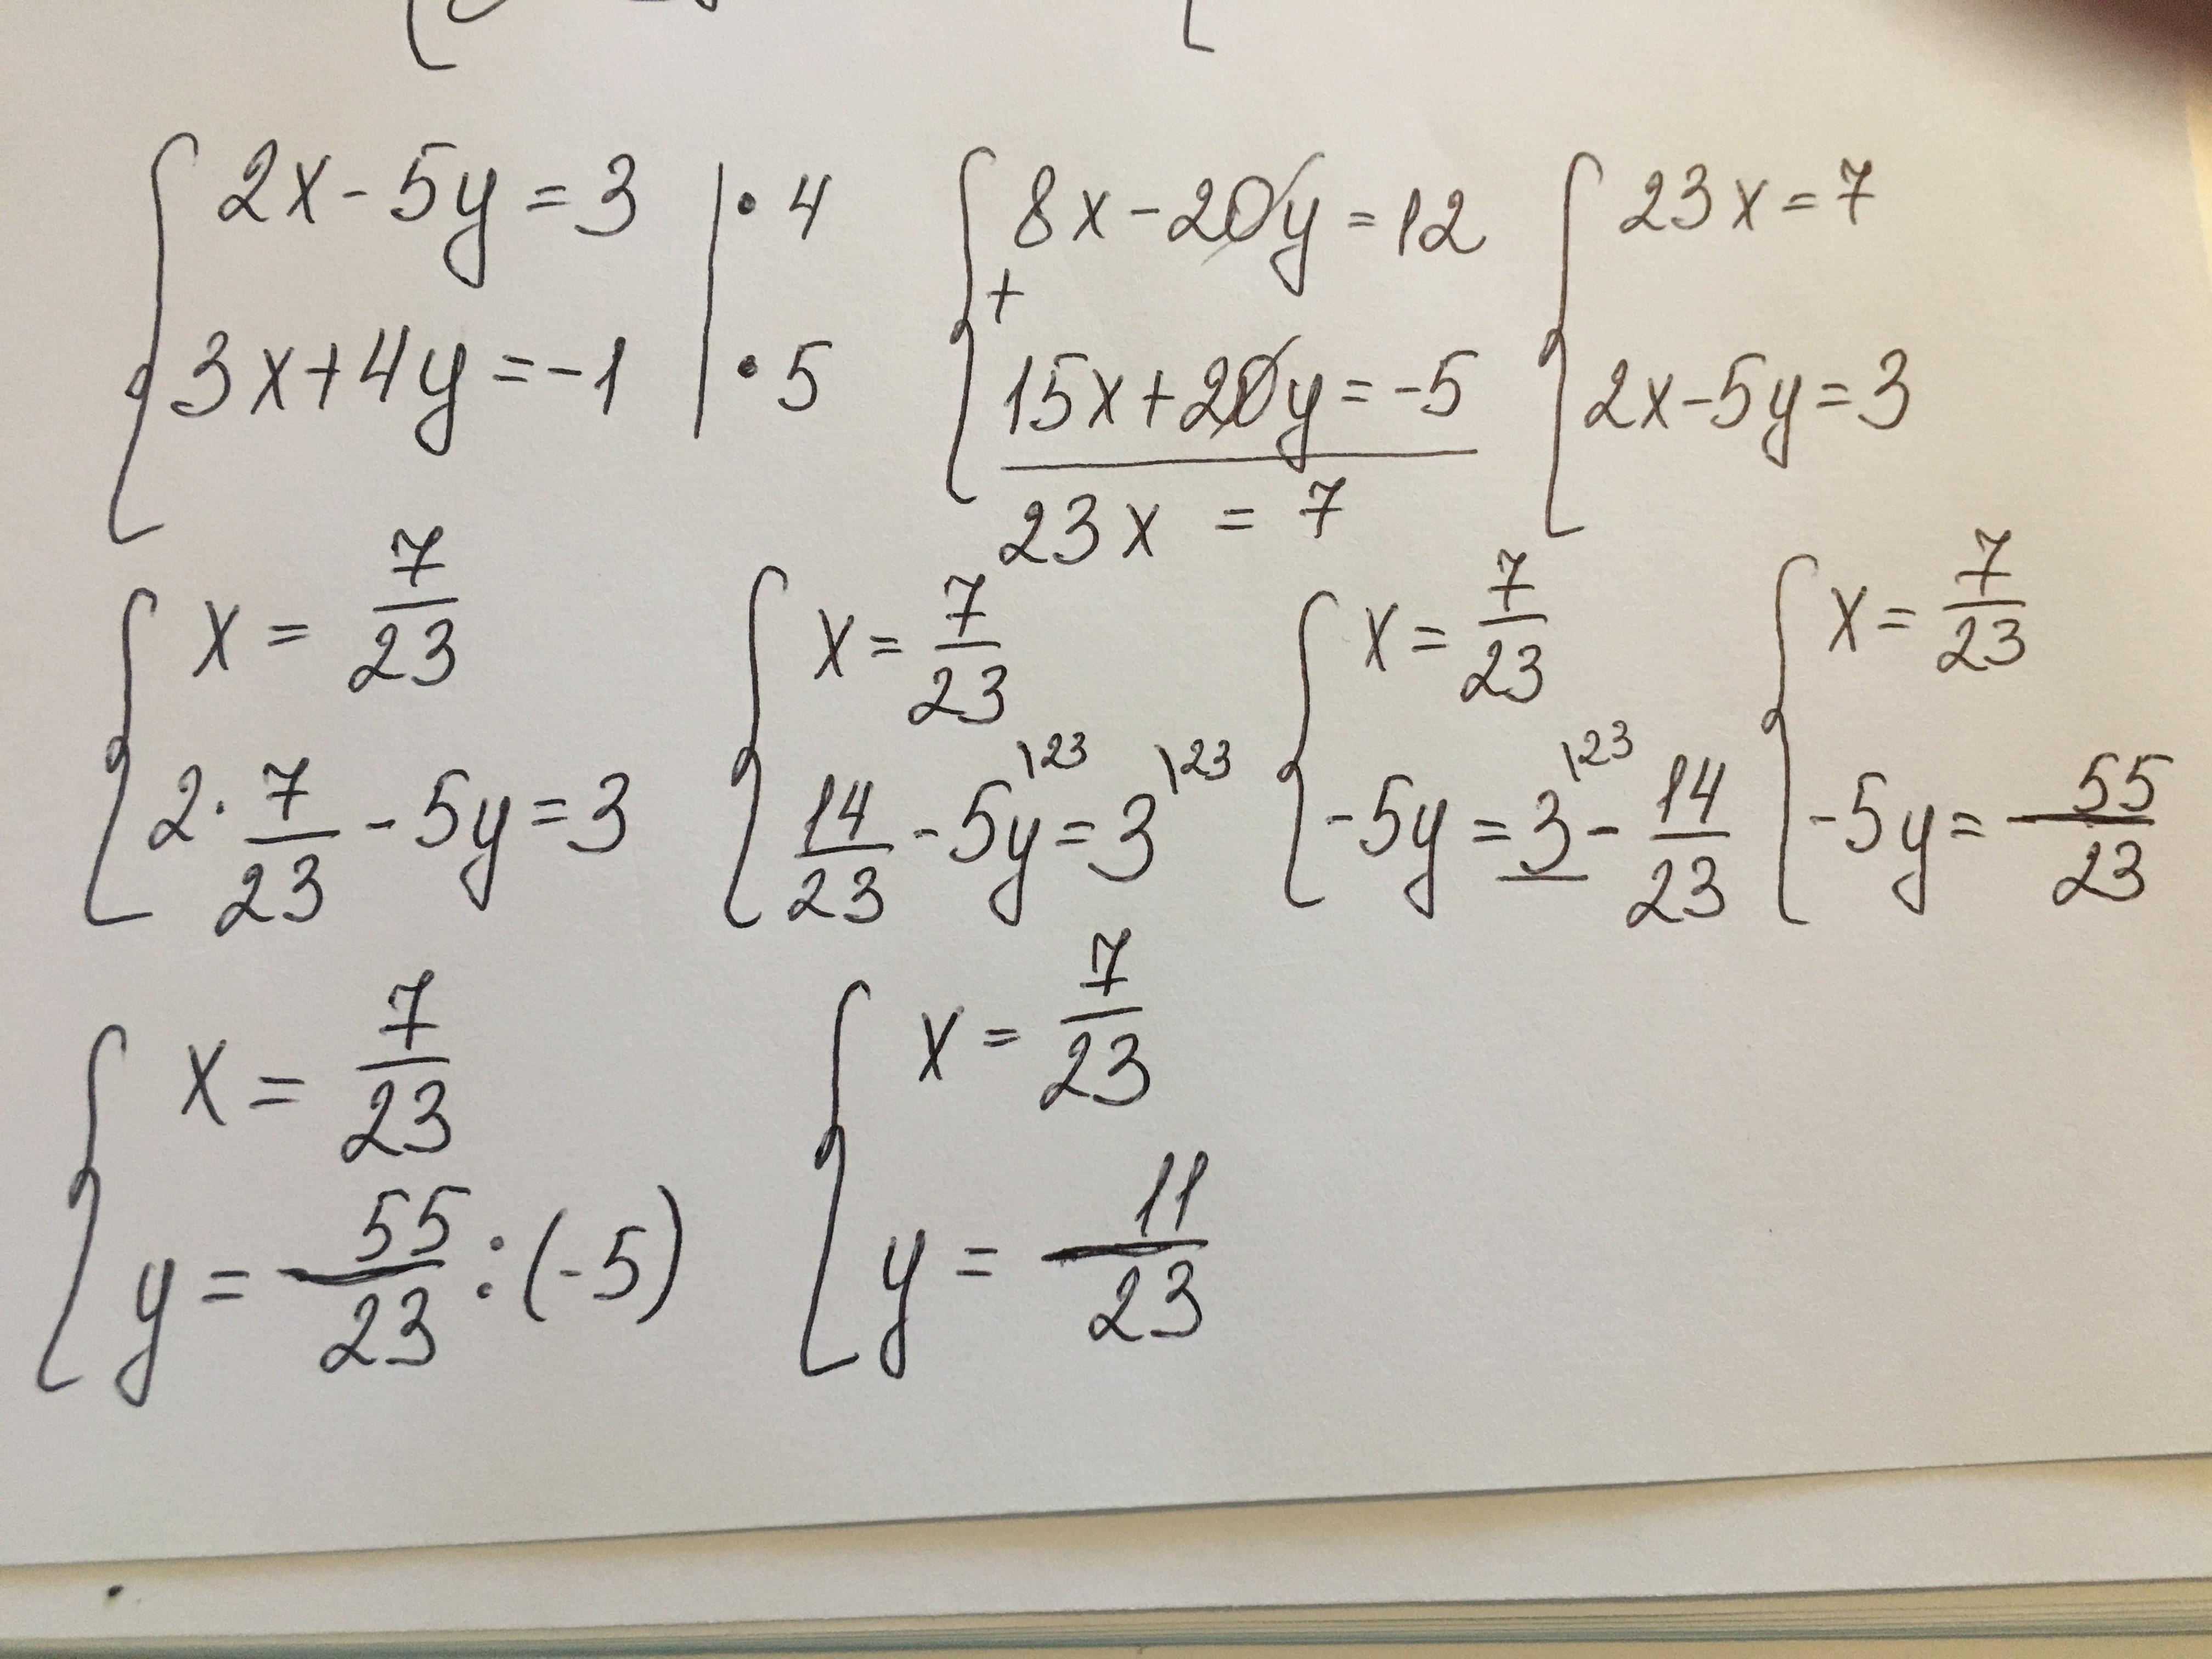 { 2x - 5y = 3 | · 4
{ 3x + 4y = -1 | · 5
{ 8x - 20y = 12
+
{ 15x + 20y = -5
23x = 7
{ 23x = 7
{ 2x - 5y = 3
{ x = 7/23
{ 2 · 7/23 - 5y = 3
{ x = 7/23
{ 14/23 - 5y\23 = 3\23
{ x = 7/23
{ -5y = 3\23 - 14/23
{ x = 7/23
{ -5y = -55/23
{ x = 7/23
{ y = -55/23 : (-5)
{ x = 7/23
{ y = -11/23